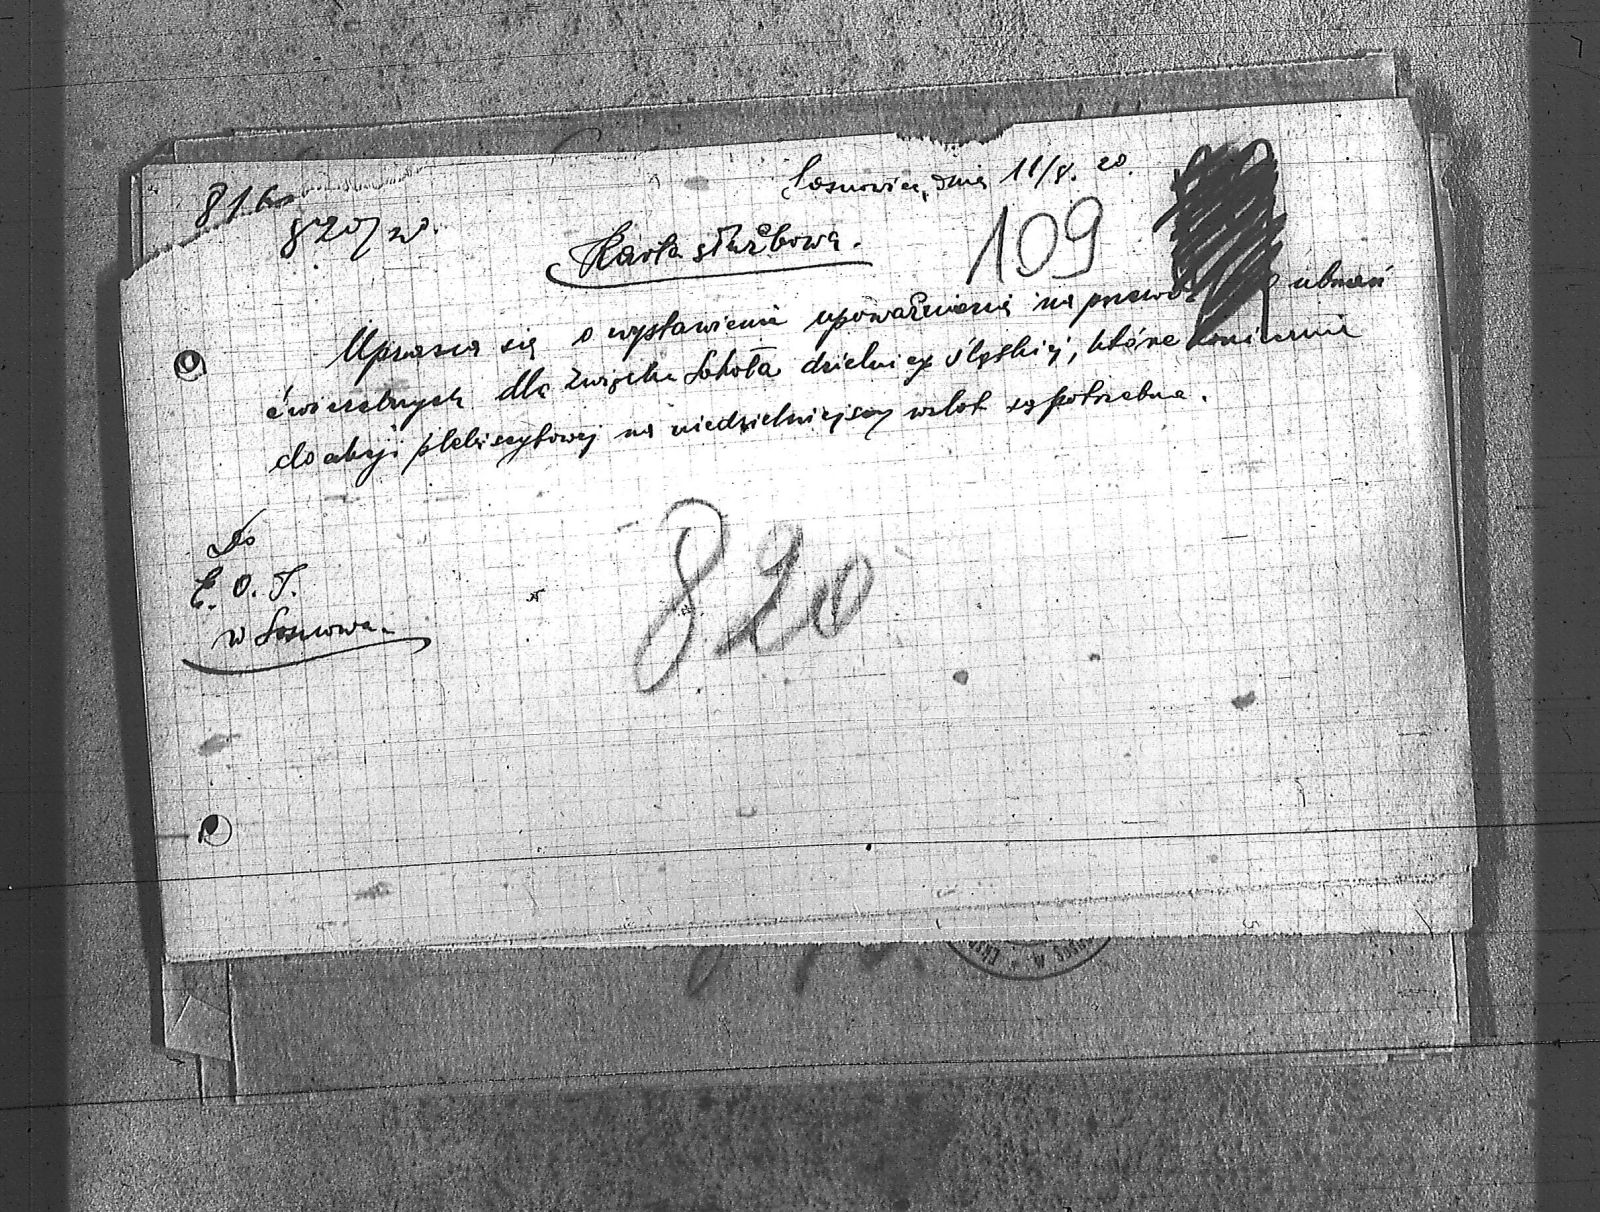 Sosnowiec, dnia 11/8. 20.
816
820/
109
Karta służbowa.
Uprasza się o wystawienie upoważnienia na przewóz ubrań
ćwiczebnych dla Związku Sokoła dzielnicy śląskiej, które koniecznie
do akcji plebiscytowej na niedzielniejszy wzlot są potrzebne.
Do
E. O. T.
w Sosnowcu
820